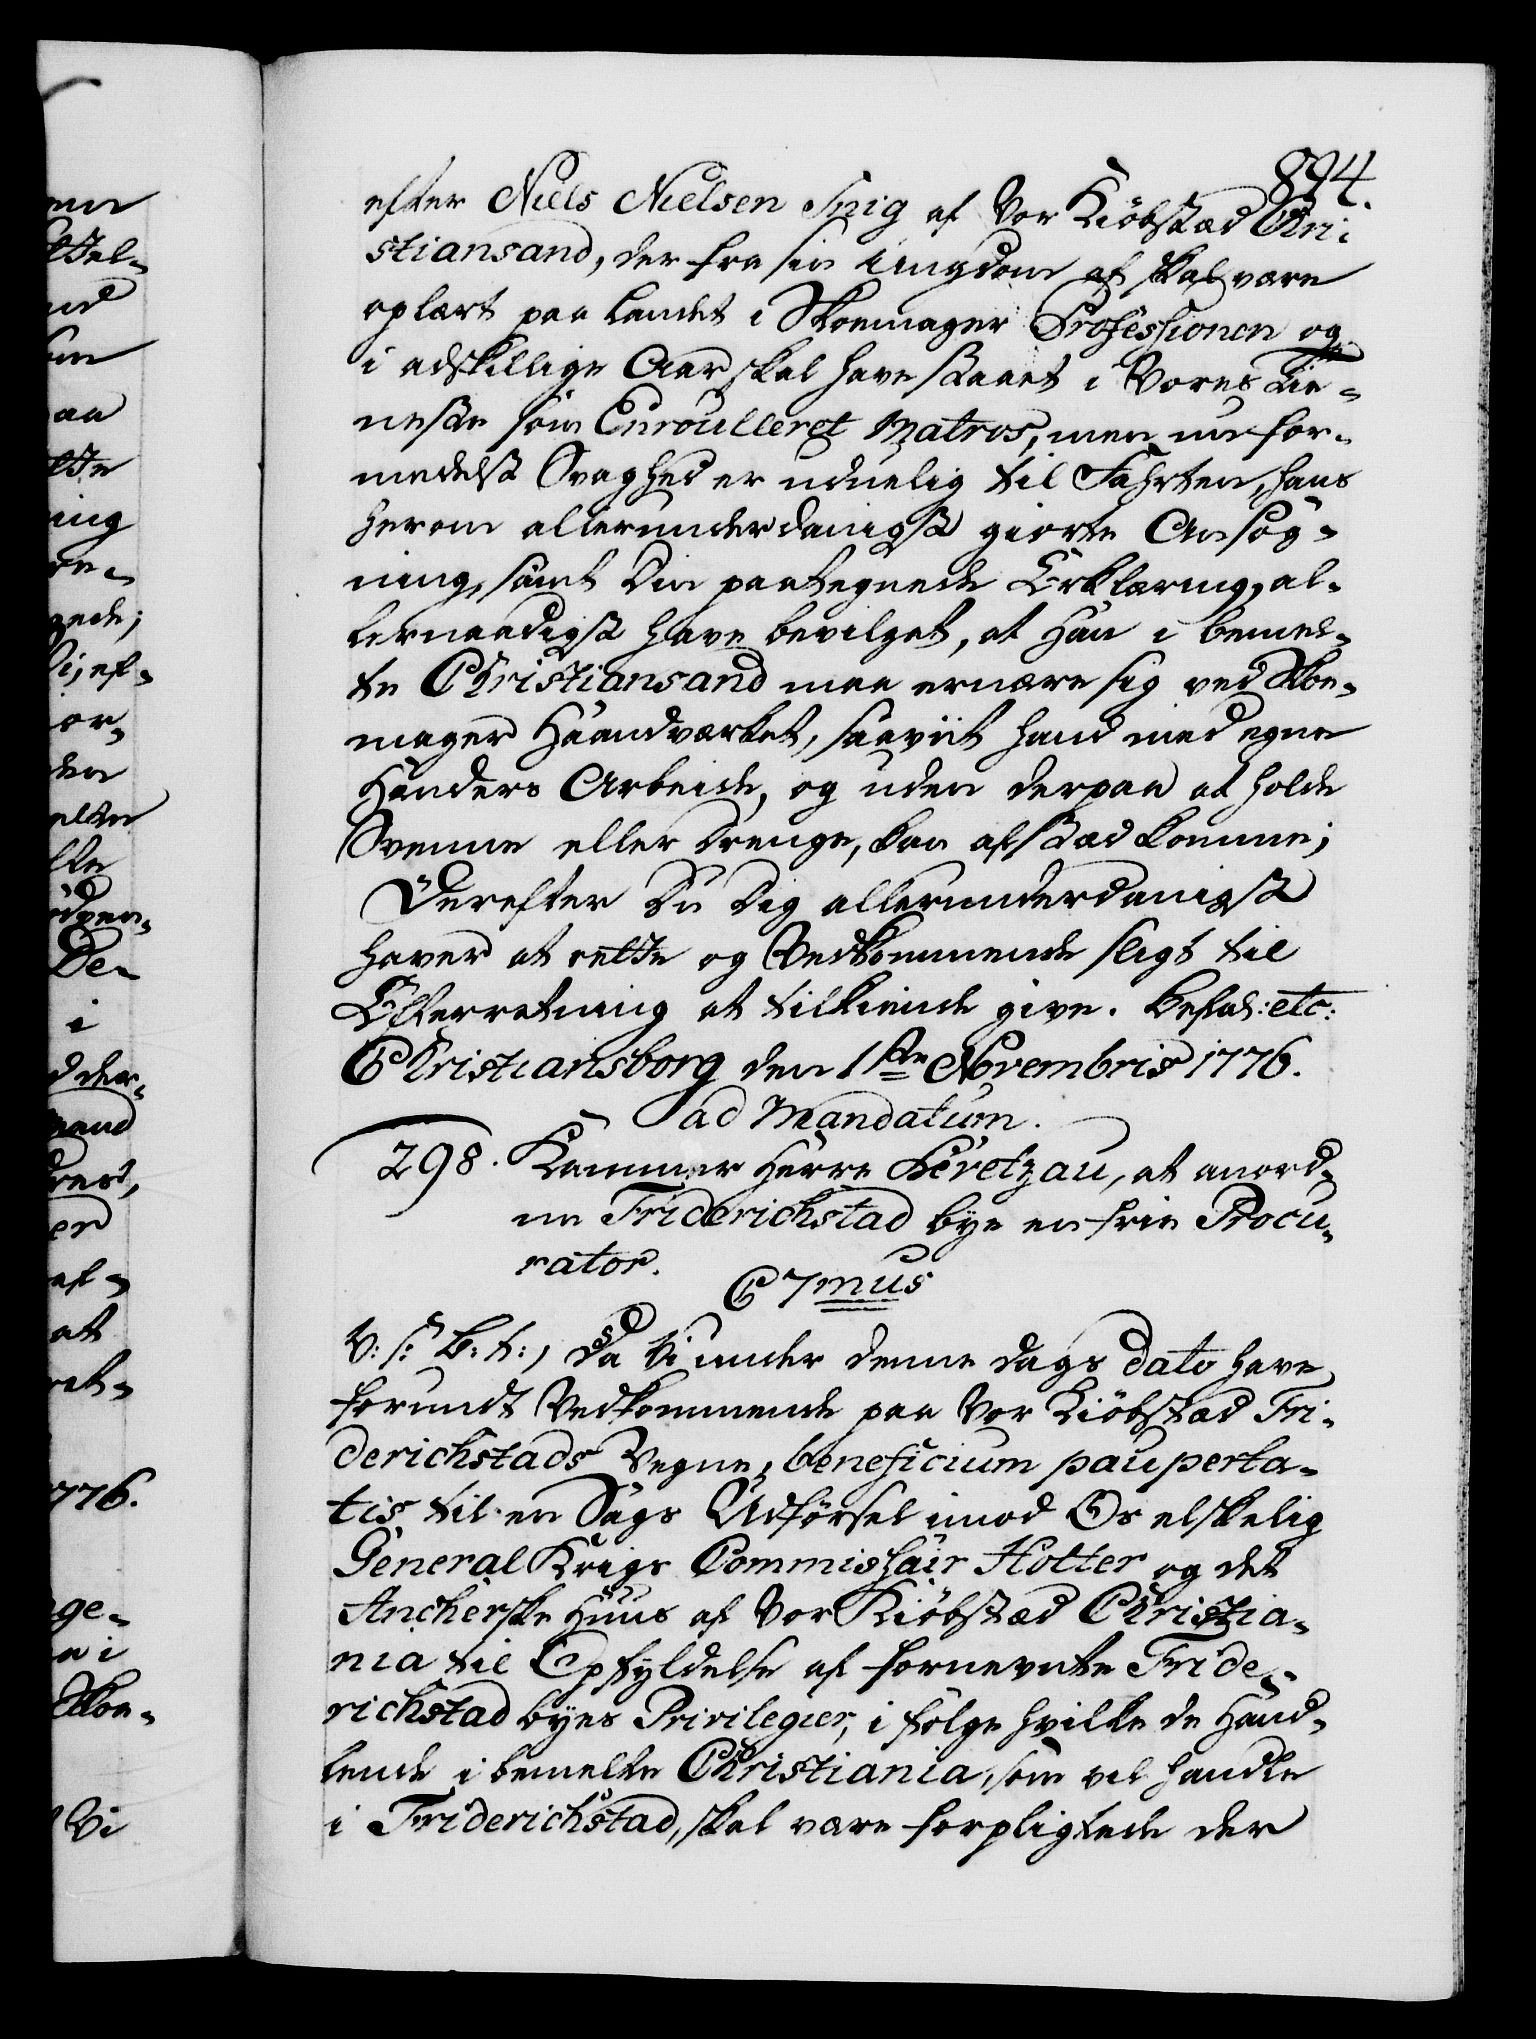 894.
efter Niels Nielsen Snig af Vor Kiöbstæd Chri-
stiansand, der fra sin Ungdom af skal være
oplært paa Landet i Skoemager Professionen og
i adskillige Aar skal have staaet i Vores Tie-
neste som Enroulleret Matros, men nu for-
medelst Svaghed er uduelig til Fahrten, hans
herom allerunderdanigst giorte Ansøg-
ning, samt Din paategnede Erklæring, al-
lernaadigst have bevilget, at Han i bemel-
te Christiansand maa ernære sig ved Skoe-
mager Haandværket, saaviit hand med egne
Hænders Arbeide, og uden derpaa at holde
Svenne eller Drenge, kan afsted komme;
Derefter Du Dig allerunderdanigst
haver at rette og Vedkommende sligt til
Efterretning at tilkiende give. Befal: etc:
Christiansborg den 1ste Novembris 1776.
ad Mandatum.
298. Kammer Herre Levetzau, at anord-
ne Friderichstad bye en frie Procu-
rator.
C 7mus
V: s: B: t:, Da Vi under denne Dags Dato have
forundt Vedkommende paa Vor Kiöbstæd Fri-
derichstads Vegne, beneficium pauperta-
tis til en Sags Udførsel imod Os elskelig
General Krigs Commishair Hotter og det
Ancherske Huus af Vor Kiöbstæd Christia-
nia til Opfyldelse af fornevnte Fride-
richstad byes Privilegier, i følge hvilke de Hand-
lende i bemelte Christiania, som vil handle
i Friderichstad, skal være forpligtede der